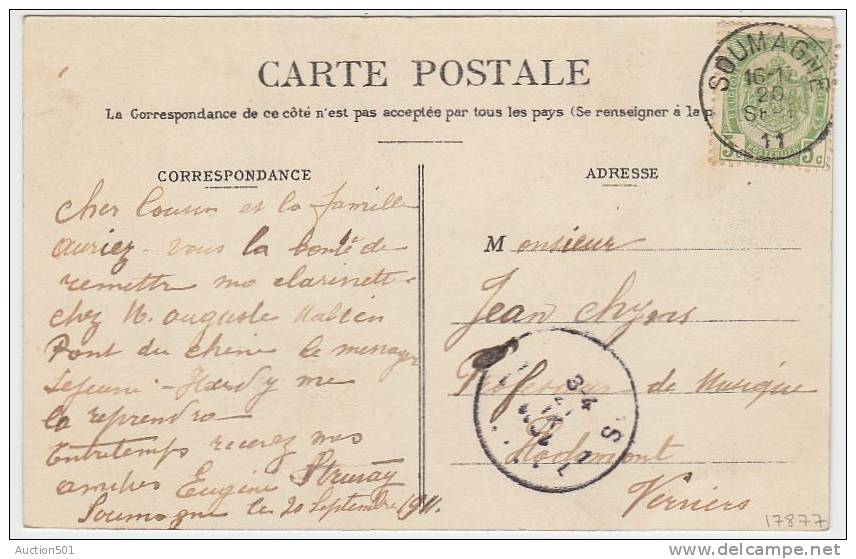 CARTE POSTALE
La Correspondance de ce côté n'est pas acceptée par tous les pays (Se renseigner à la p
CORRESPONDANCE
Cher Cousin et la famille
auriez-vous la bonté de
remettre ma clarinette
chez M. Auguste
Pont du chêne le messager
Lejeune-Hardy me
la reprendra
Entretemps recevez mes
Eugène
Soumagne le 20 Septembre 1911.
ADRESSE
Monsieur
Jean
Professeur de Musique
Hodimont
Verviers
SOUMAGNE
20
SEPT
11
5c 5c
3-4
17877
Auction501
delcampe.net